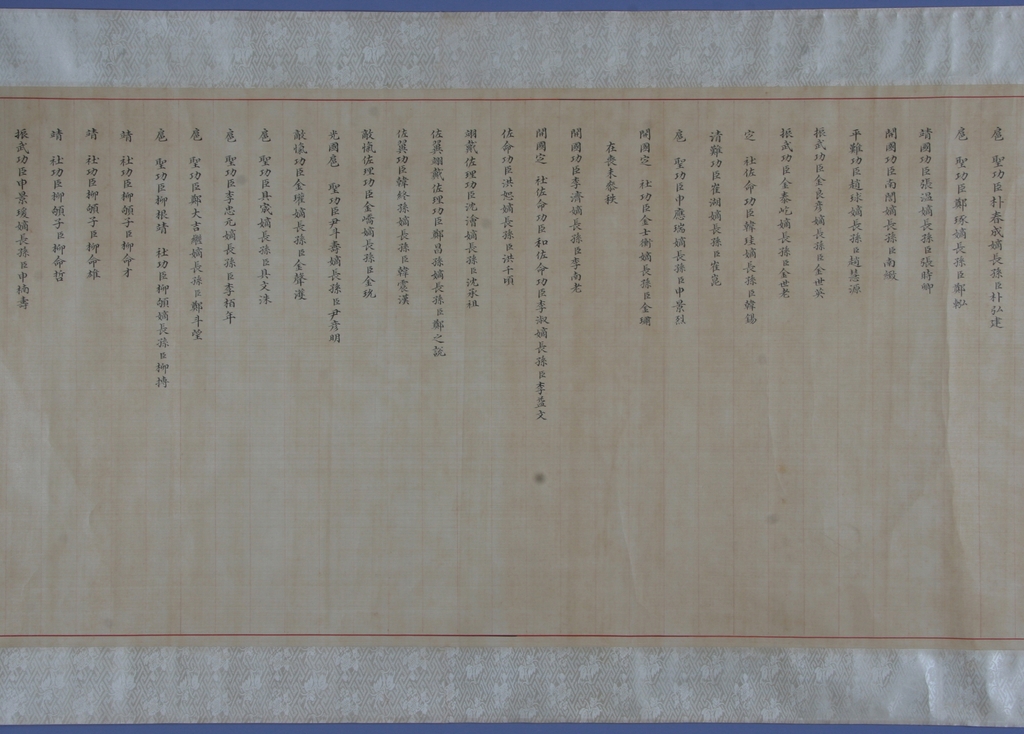 扈 聖功臣朴春成嫡長孫臣朴弘建
扈 聖功臣鄭琢嫡長孫臣鄭
靖國功臣張溫嫡長孫臣張時卿
開國功臣南誾嫡長孫臣南
平難功臣趙球嫡長孫臣趙慧源
振武功臣金良彥嫡長孫臣金世英
振武功臣金泰屹嫡長孫臣金世老
定 社佐命功臣韓珪嫡長孫臣韓錫
清難功臣崔湖嫡長孫臣崔崑
扈 聖功臣申應瑞嫡長孫臣申景烈
開國定 社功臣金士衡嫡長孫臣金
在喪未祭秩
開國功臣李濟嫡長孫臣李南老
開國定 社佐命功臣和佐命功臣李淑嫡長孫臣李益文
佐命功臣洪恕嫡長孫臣洪千頃
翊戴佐理功臣沈澮嫡長孫臣沈承祖
佐翼翊戴佐理功臣鄭昌孫嫡長孫臣鄭之
佐翼功臣韓終孫嫡長孫臣韓雲漢
敵愾佐理功臣金嶠嫡長孫臣金
光國扈 聖功臣尹斗壽嫡長孫臣尹彥明
敵愾功臣金瓘嫡長孫臣金聲護
扈 聖功臣具宬嫡長孫臣具文洙
扈 聖功臣李忠元嫡長孫臣李栢年
扈 聖功臣鄭大吉嫡長孫臣鄭斗瑩
扈 聖功臣柳根靖 社功臣柳頔嫡長孫臣柳
靖 社功臣柳頔子臣柳命才
靖 社功臣柳頔子臣柳命雄
靖 社功臣柳頔子臣柳命哲
振武功臣申景瑗嫡長孫臣申楠壽